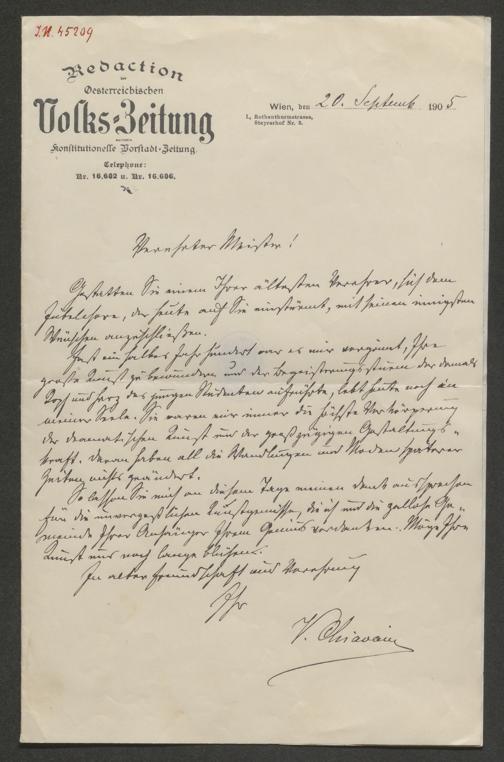 I.N. 45209
Redaction
der
Oesterreichischen
Volks-Zeitung
vormals
Konstitutionelle Vorstadt-Zeitung.
Telephone:
Nr. 16.602 u. Nr. 16.606.
Wien, den 20. Septemb. 1905
I., Rothenthurmstrasse,
Steyrerhof Nr. 3.
Verehrter Meister!
Gestatten Sie einem Ihrer ältesten Verehrer, sich dem
Jubelchore, der heute auf Sie einstürmt, mit seinen innigsten
Wünschen anzuschließen.
Fast ein halbes Jahrhundert war es mir vergönnt, Ihre
große Kunst zu bewundern und der Begeisterungssturm der damals
Kopf und Herz des jungen Studenten aufrührte, lebt heute noch in
meiner Seele. Sie waren mir immer die höchste Verkörperung
der dramatischen Kunst und der großzügigen Gestaltungs-
kraft. Daran haben all die Wandlungen und Moden späterer
Zeiten nichts geändert.
So lassen Sie mich an diesem Tage meinen Dank aussprechen
für die unvergeßlichen Kunstgenüsse, die ich und die zahllose Ge-
meinde Ihrer Anhänger Ihrem Genius verdanken. Möge Ihre
Kunst uns noch lange blühen.
In alter Freundschaft und Verehrung
Ihr
V. Chiavacci